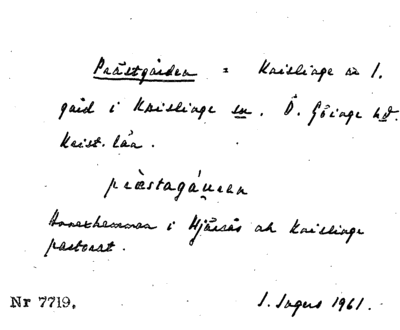 Prästgården = Knislinge nr 1.
gård i Knislinge sn. Ö. Göinge hd.
Krist. län.
prästagáṷren
Annexhemman i Hjärsås och Knislinge
pastorat.
Nr 7719.
S. Ingers 1961.